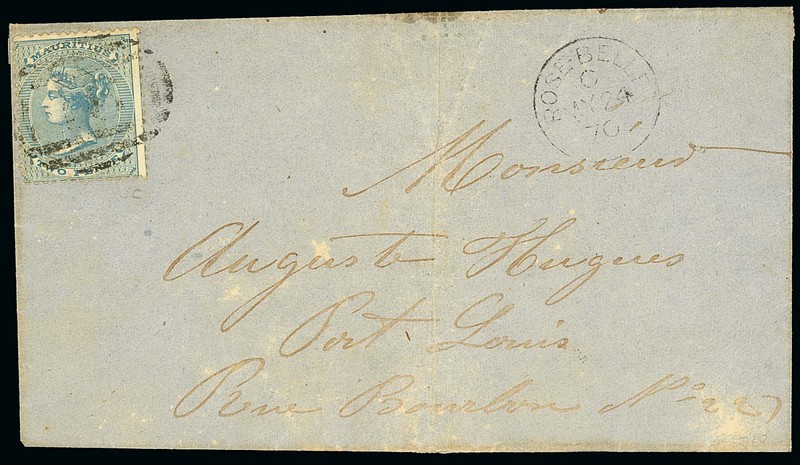 MAURITIUS
TWO
ROSE-BELLE
C
70
Monsieur
Auguste Hugues
Port Louis
Rue Bourbon No 227